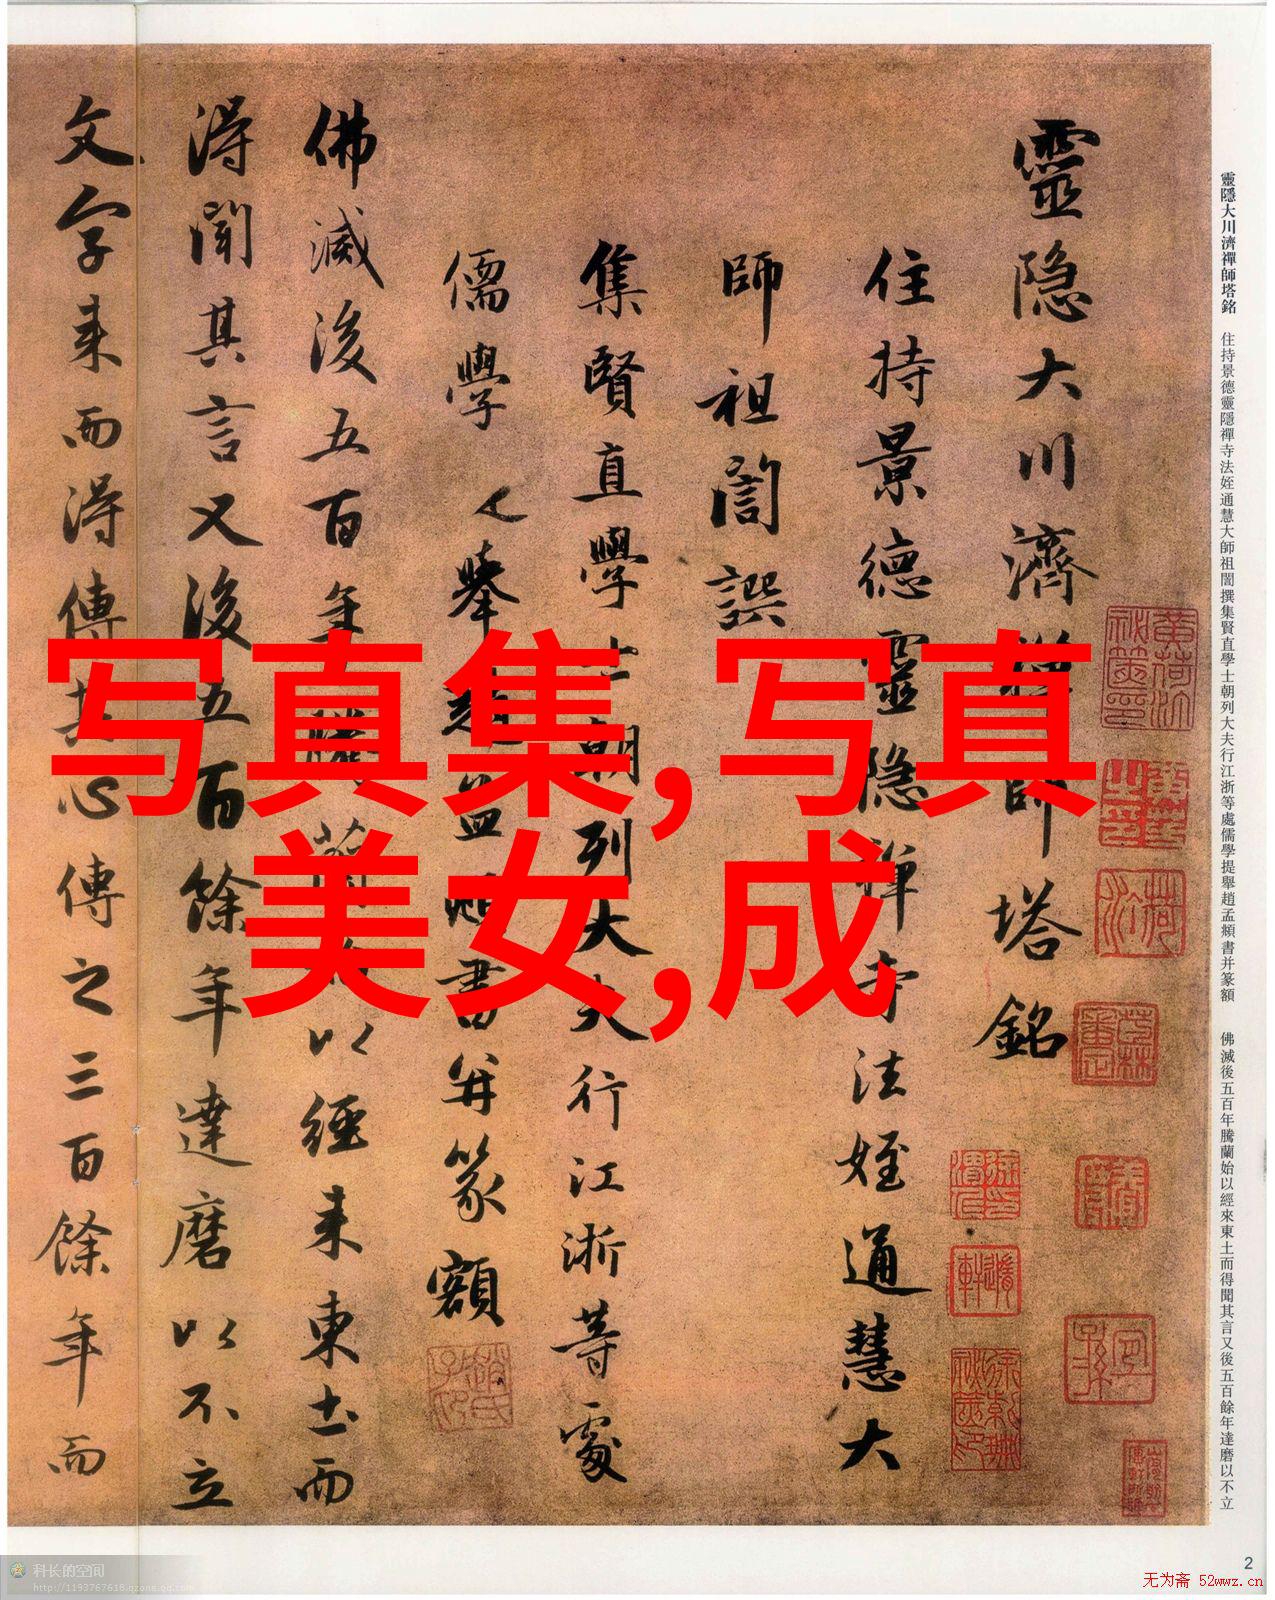 靈隱大川濟禪師塔銘 住持景德靈隱禪寺法姪通慧大師祖誾撰集賢直學士朝列大夫行江浙等處儒學提舉趙孟頫書并篆額 佛滅後五百年騰蘭始以經來東土而得聞其言又後五百餘年達磨以不立
靈隐大川濟禪師塔銘
住持景德靈隐禅寺法姪通慧大
師祖誾譔
集賢直學士朝列大夫行江浙等處
儒學舉趙孟頫書并篆額
佛滅後五百年騰蘭始以經来東土而
得聞其言又後五百餘年達磨以不立
文字来而得傳其心傳之三百餘年而
写真集,写真
美女,成
2
科长的空间
http://1193767618.qzone.qq.com
无为斋 52wwz.cn